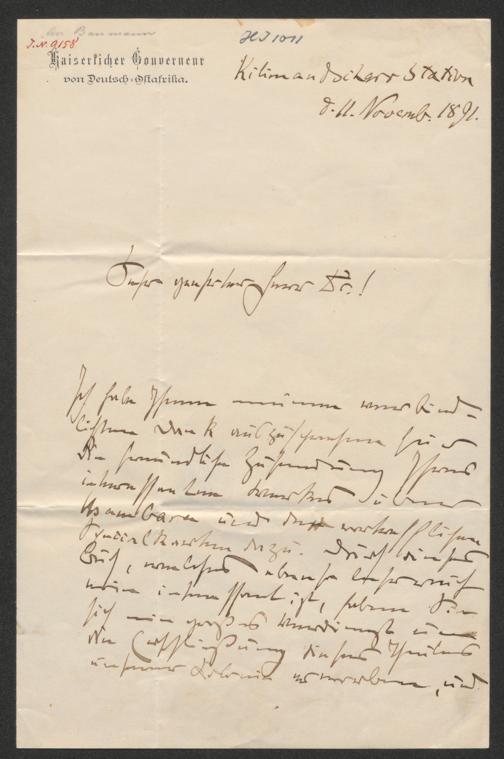 An Baumann
J.N. 9158
HJ 1011
Kaiserlicher Gouverneur
von Deutsch-Ostafrika.
Kilimandscharo Station
d. 11. Novemb. 1891.
Sehr geehrter Herr Dr.!
Ich habe Ihnen meinen verbind-
lichsten Dank auszusprechen für
die freundliche Zusendung Ihres
interessanten Werkes über
Usambara und der vortrefflichen
Specialkarten dazu. Durch dieses
Buch, welches ebenso lehrreich
wie interessant ist, haben Sie
sich ein großes Verdienst um
die Erschließung dieses Theiles
unserer Colonie erworben, und